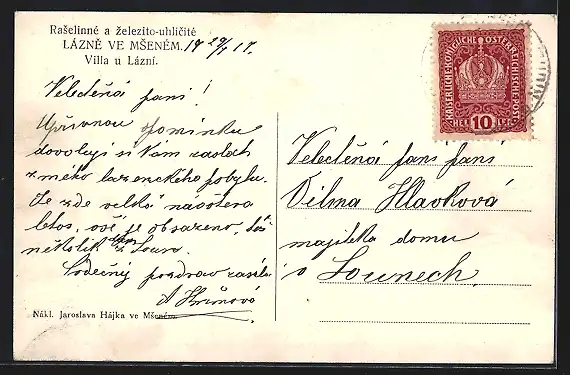 Rašelinné a železito-uhličité
LÁZNĚ VE MŠENÉM. 19 29/ 17.
Villa u Lázní.
Veleděná paní!
Upřímnou vpomínku
dovoluji si Vám zaslati
z mého lazenského pobytu.
Je zde velká návštěva
letos, vše je obsazeno, též
několik z Loun.
Srdečný pozdrav zasílá
A Hrimová
Nákl. Jaroslava Hájka ve Mšeném.
KAISERLICHE KÖNIGLICHE ÖSTERREICHISCHE POST
HELLER
10
Veleděná paní paní
Vilma Hlavková
majitelka domu
v Lounech.